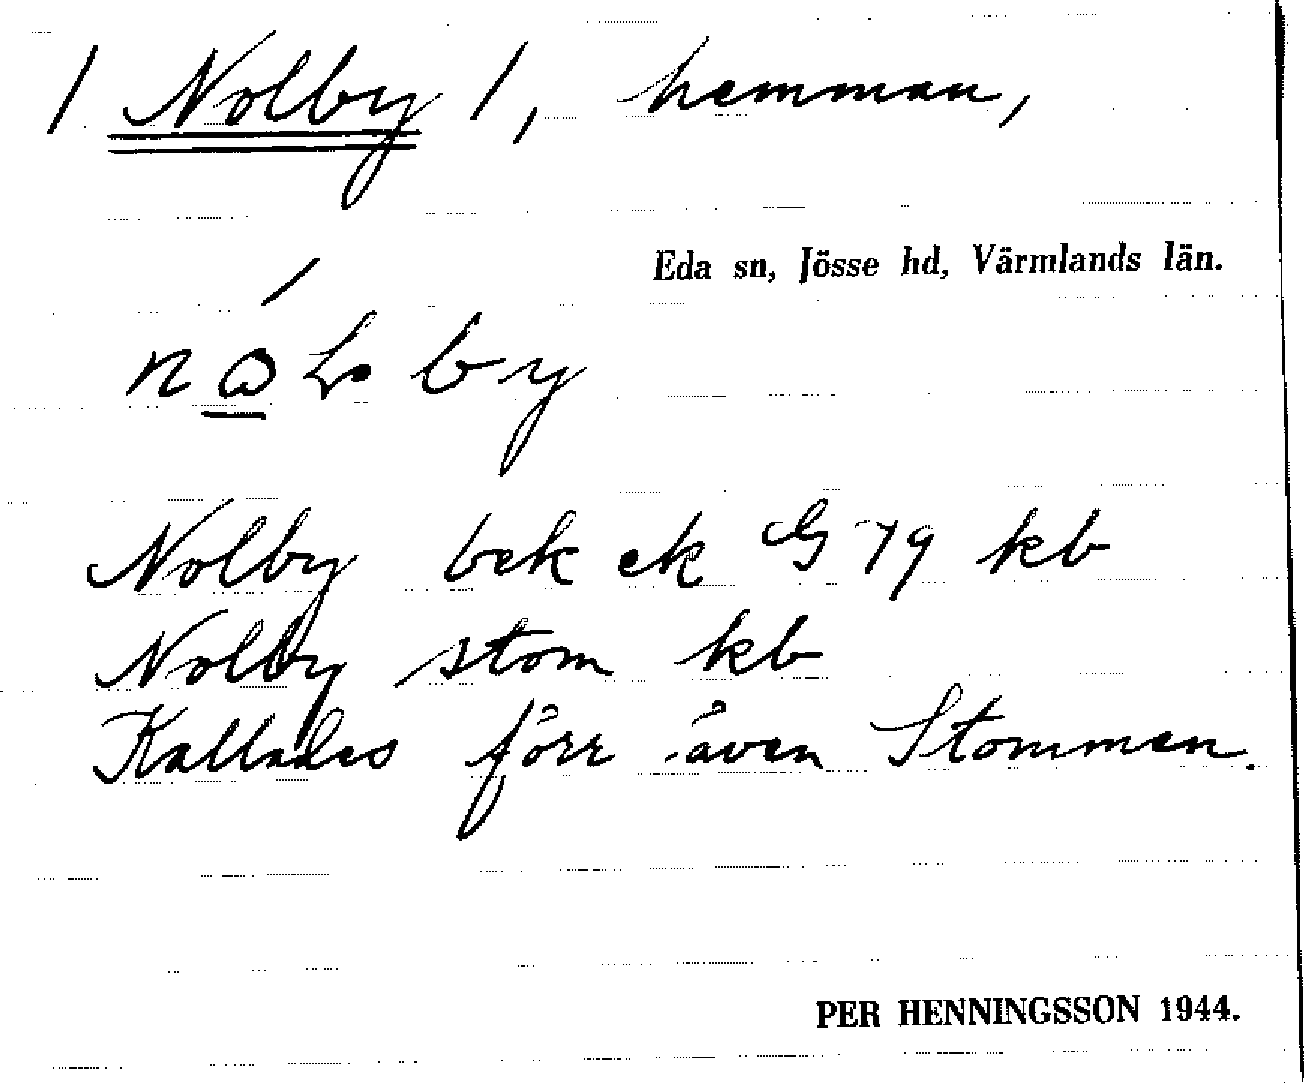 / Nolby /, hemman,
Eda sn, Jösse hd, Värmlands län.
Nolby bek ek G 79 kb
Nolby stom kb
Kallades förr även Stommen.
PER HENNINGSSON 1944.